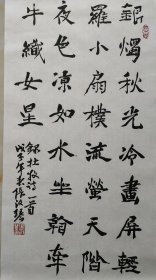 銀燭秋光冷畫屏輕
羅小扇撲流螢天階
夜色凉如水坐看牽
牛織女星
錄杜牧詩一首
戊子年